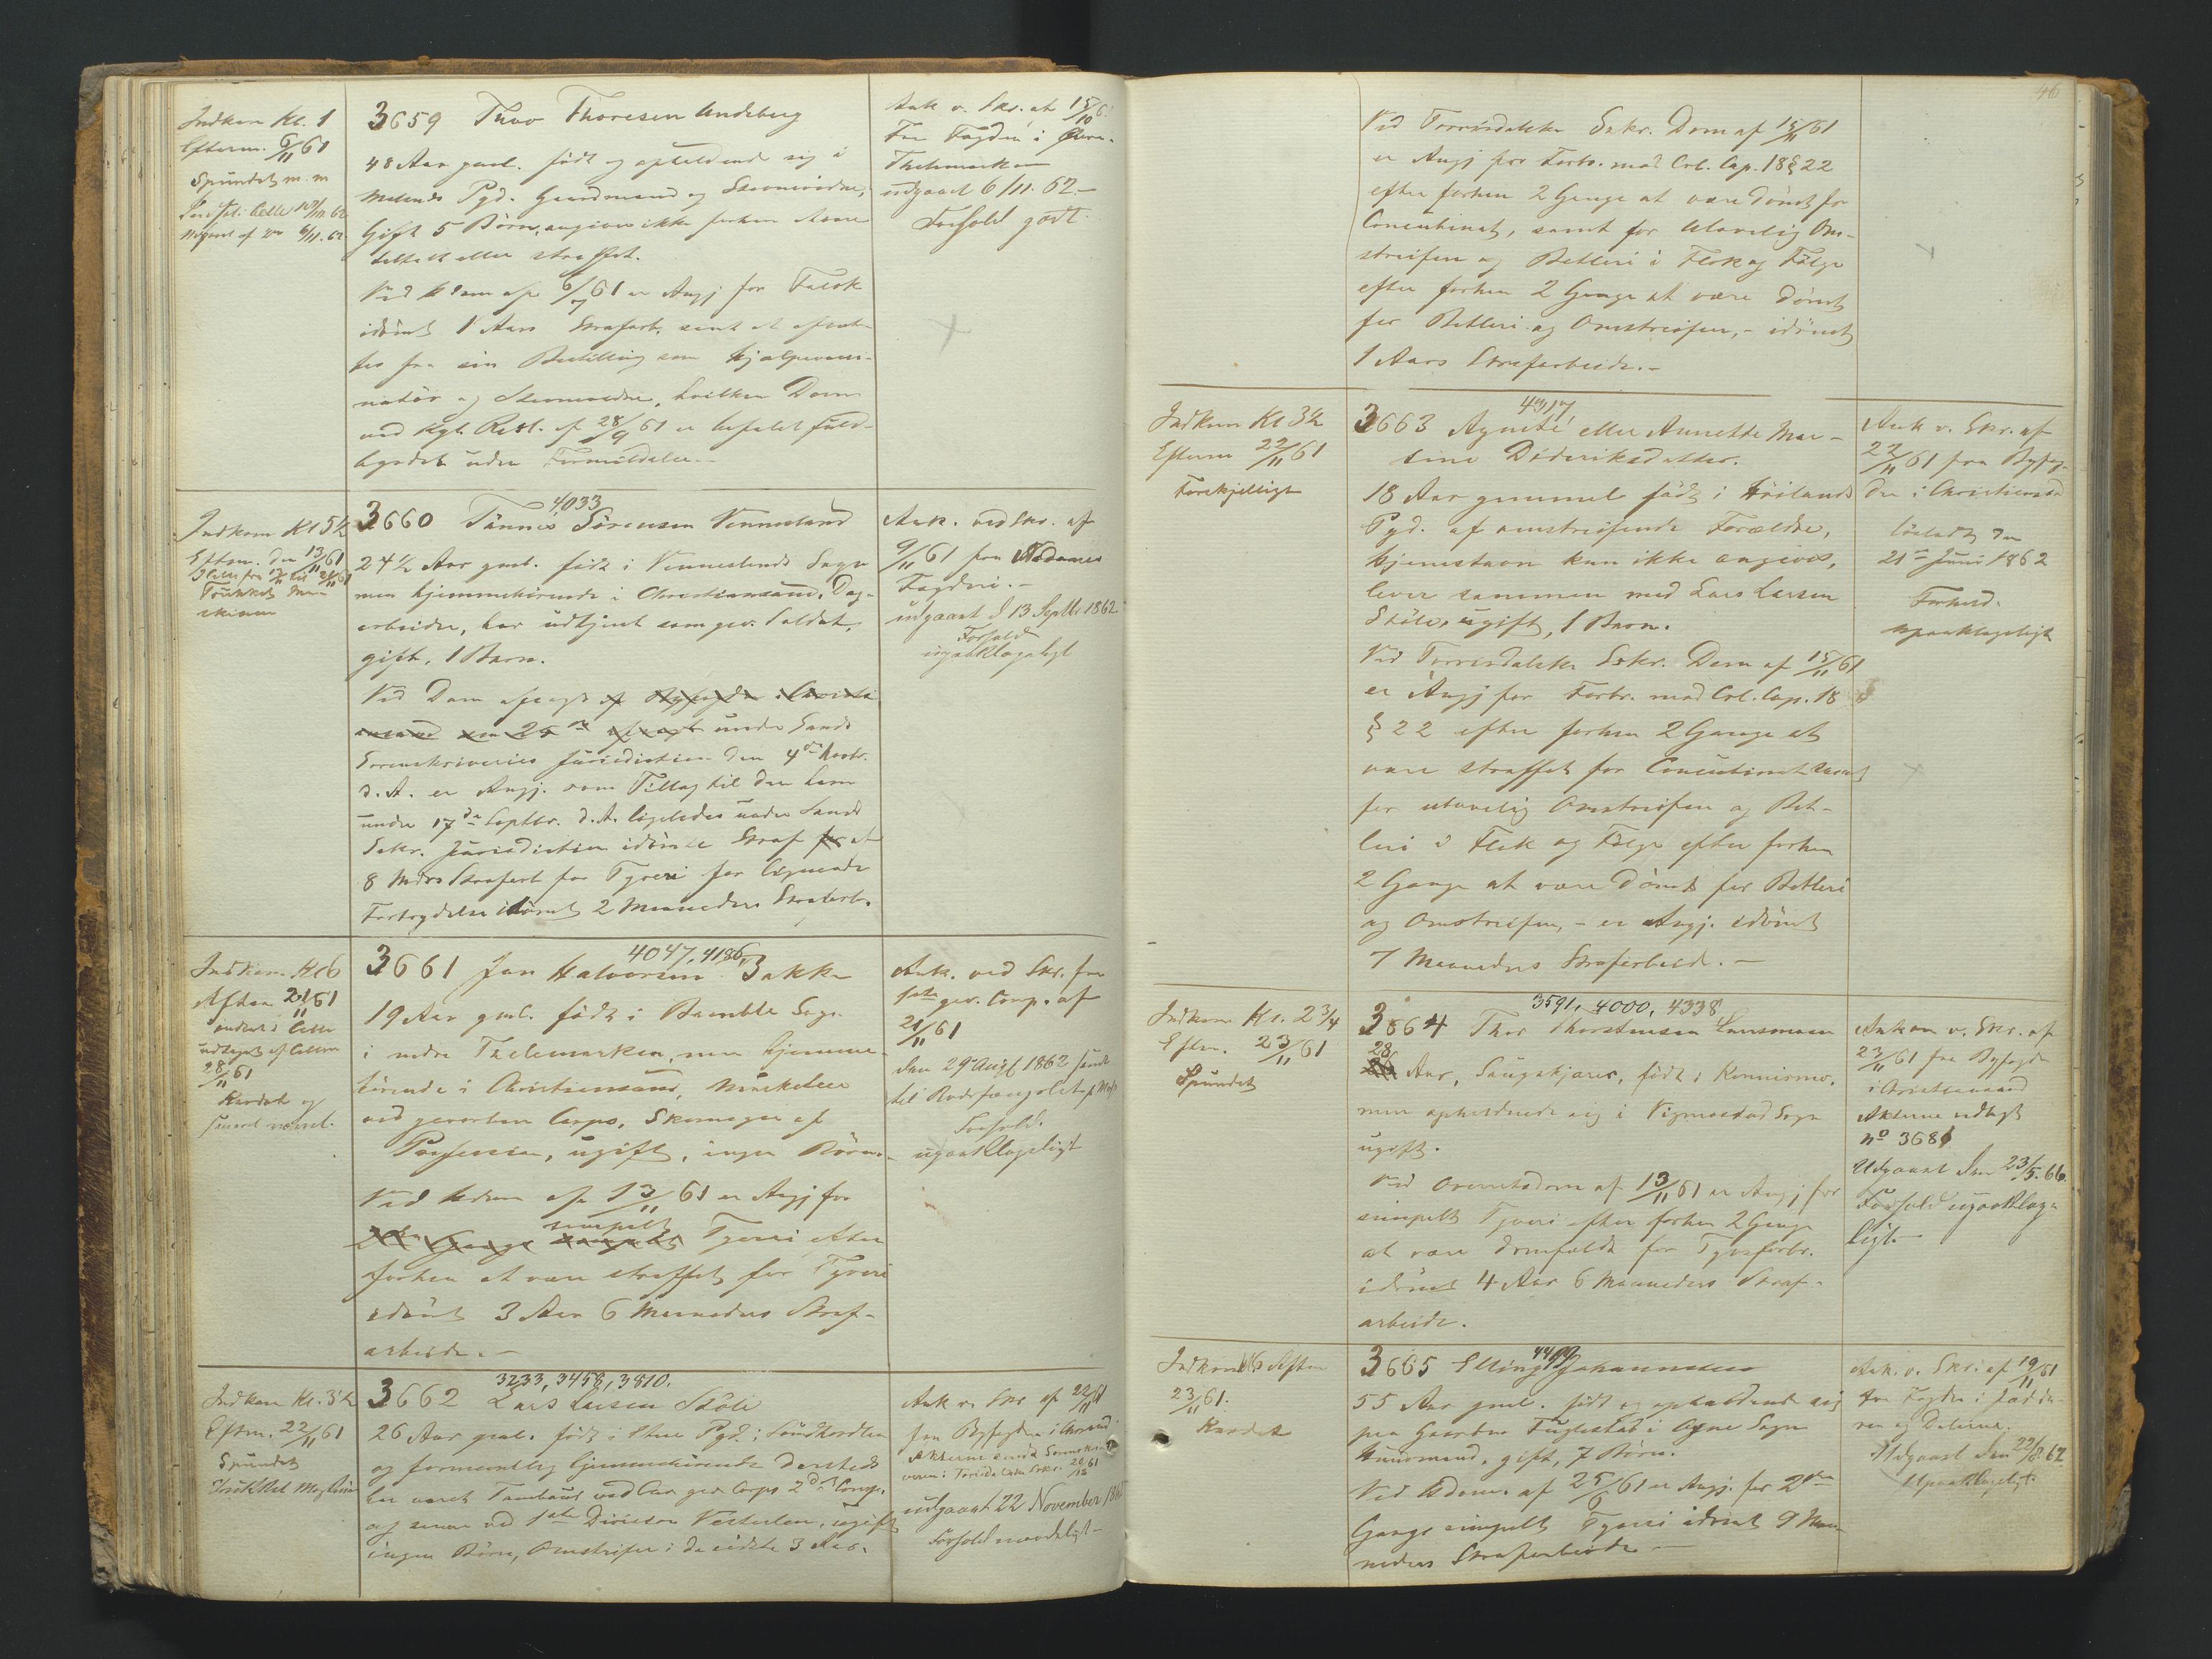 46
Indkom Kl. 1
Efterm. 6/11 61
Spundet m. m
3659 Thor Thoresen
48 Aar gml. født og opholdende sig i
Pgd. Gaardmand og
Gift 5 Børn, angiver ikke forhen at være
tiltalt eller straffet.
Ved Hdom af 6/7 61 er Angj for Falsk
idømt 1 Aars Strafarb. samt at afsæt-
tes fra sin Bestilling som
og Stevnevidne, hvilken Dom
ved Kgl. Resl. af 28/9 61 er befalet fuld-
byrdet uden Formildelse.
Ank v. Skr. af 15/10 6
Fra Fogden i Øvre-
Thelemarken
udgaaet 6/11. 62.-
Forhold godt.
Indkom Kl 5½
Eftm. den 13/11 61
4033
3660 Tønnes Sørensen Vennesland
24½ Aar gml. født i Venneslands Sogn
men hjemmehørende i Christiansand, Dag-
arbeider, har udtjent som gev. Soldat,
gift, 1 Barn.
Ved Dom afsagt
under Sands
Sorenskriveries Jurisdiction den 4de Novbr.
d. A. er Angj. som Tillæg til den ham
under 17de Septbr. d. A. ligeledes under Sands
Sskr. Jurisdiction idømte Straf
8 Mdrs Strafarb for Tyveri for lignende
Forbrydelse idømt 2 Maaneders Strafarb.
Ank. ved Skr. af
9/11 61 fra Nedenes
Fogderi.-
udgaaet d 13 Septbr 1862
Forhold
upaaklageligt
Indkom Kl 6
Aften 21/11 61
indsat i Celle
udtaget af Cellen
28/11 61
Kardet og
4047, 4186,
3661 Jan Halvorsen Bakke
19 Aar gml. født i Bamble Sogn
i nedre Thelemarken, men hjemme-
hørende i Christiansand,
ved gevorben Corps, Skomager af
Profession, ugift, ingen Børn.
Ved Hdom af 13/11 61 er Angj for
simpelt Tyveri efter
forhen at være straffet for Tyveri
idømt 3 Aar 6 Maaneders Straf-
arbeide.-
Ank. ved Skr. fra
gev. Comp. af
21/11 61
den 29 Augt 1862 sendt
til Bodsfængslet
Forhold.
upaaklageligt
Indkom Kl. 3½
Eftm. 22/11 61
Spundet
3233, 3458, 3810.
3662 Lars Larsen Støle
26 Aar gml. født i Pgd. i Søndhordlen
og formentlig hjemmehørende dersteds
har været Tambour ved gev. Corps 2d Comp.
og senere ved 1ste Division Vesterlen, ugift
ingen Børn, Omstreifer i de sidste 3 Aar.
Ank v. Skr af 22/11 61
fra Byfogden i
udgaaet 22 November 1862
Forhold maadeligt-
Ved Torrisdalske Sskr. Dom af 15/11 61
er Angj for Forbr. mod Crl. Cap. 18 § 22
efter forhen 2 Gange at være dømt for
Concubinat, samt for ulovlig Om-
streifen og Betleri i Flok og Følge
efter forhen 2 Gange at være dømt
for Betleri og Omstreifen,- idømt
1 Aars Strafarbeide.-
Indkom Kl 3½
Efterm 22/11 61
Forskjelligt
4317,
3663 Agnete eller Annette Mar-
sine Dideriksdatter.
18 Aar gammel født i Høilands
Pgd. af omstreifende Forældre,
hjemstavn kan ikke angives,
lever sammen med Lars Larsen
Støle, ugift, 1 Barn.
Ved Torrisdalske Sskr. Dom af 15/11 61
er Angj for Forbr. mod Crl. Cap. 18
§ 22 efter forhen 2 Gange at
være straffet for Concubinat samt
for ulovlig Omstreifen og Bet-
leri i Flok og Følge efter forhen
2 Gange at være dømt for Betleri
og Omstreifen,- er Angj. idømt
7 Maaneders Strafarbeid.-
Ank v. Skr. af
22/11 61 fra Byfog-
den i Christiansand
løsladt den
21de Juni 1862
Forhold.
upaaklageligt
Indkom Kl. 2¾
Eftm. 23/11 61
Spundet
3591, 4000, 4338,
3664 Thor Thorstensen
28 Aar, født i Konnismo.
men opholdende sig i Vigmostad Sogn
ugift.
Ved Overretsdom af 13/11 61 er Angj for
simpelt Tyveri efter forhen 2 Gange
at være domfældt for Tyvsforbr.
idømt 4 Aar 6 Maaneders Straf-
arbeide.
Ankom v. Skr. af
23/11 61 fra Byfogden
i Christiansand
Akterne vedlagt
No 3681
Udgaaet den 23/5. 66.
Forhold upaaklage-
ligt.-
Indkom Kl 6 Aften
23/11 61.
Kardet
3665 Elling Johannesen
55 Aar gml. født og opholdende sig
paa Gaarden Fuglestad i Ogne Sogn
Huusmand, gift, 7 Børn.
Ved Hdom. af 25/6 61 er Angj. for 2den
Gangs simpelt Tyveri idømt 9 Maa-
neders Strafarbeide-
Ank. v. Skr. af 19/11 61
fra Fogden i Jædde-
ren og Dalerne.
Udgaaet den 22/8. 62
Upaaklageligt.